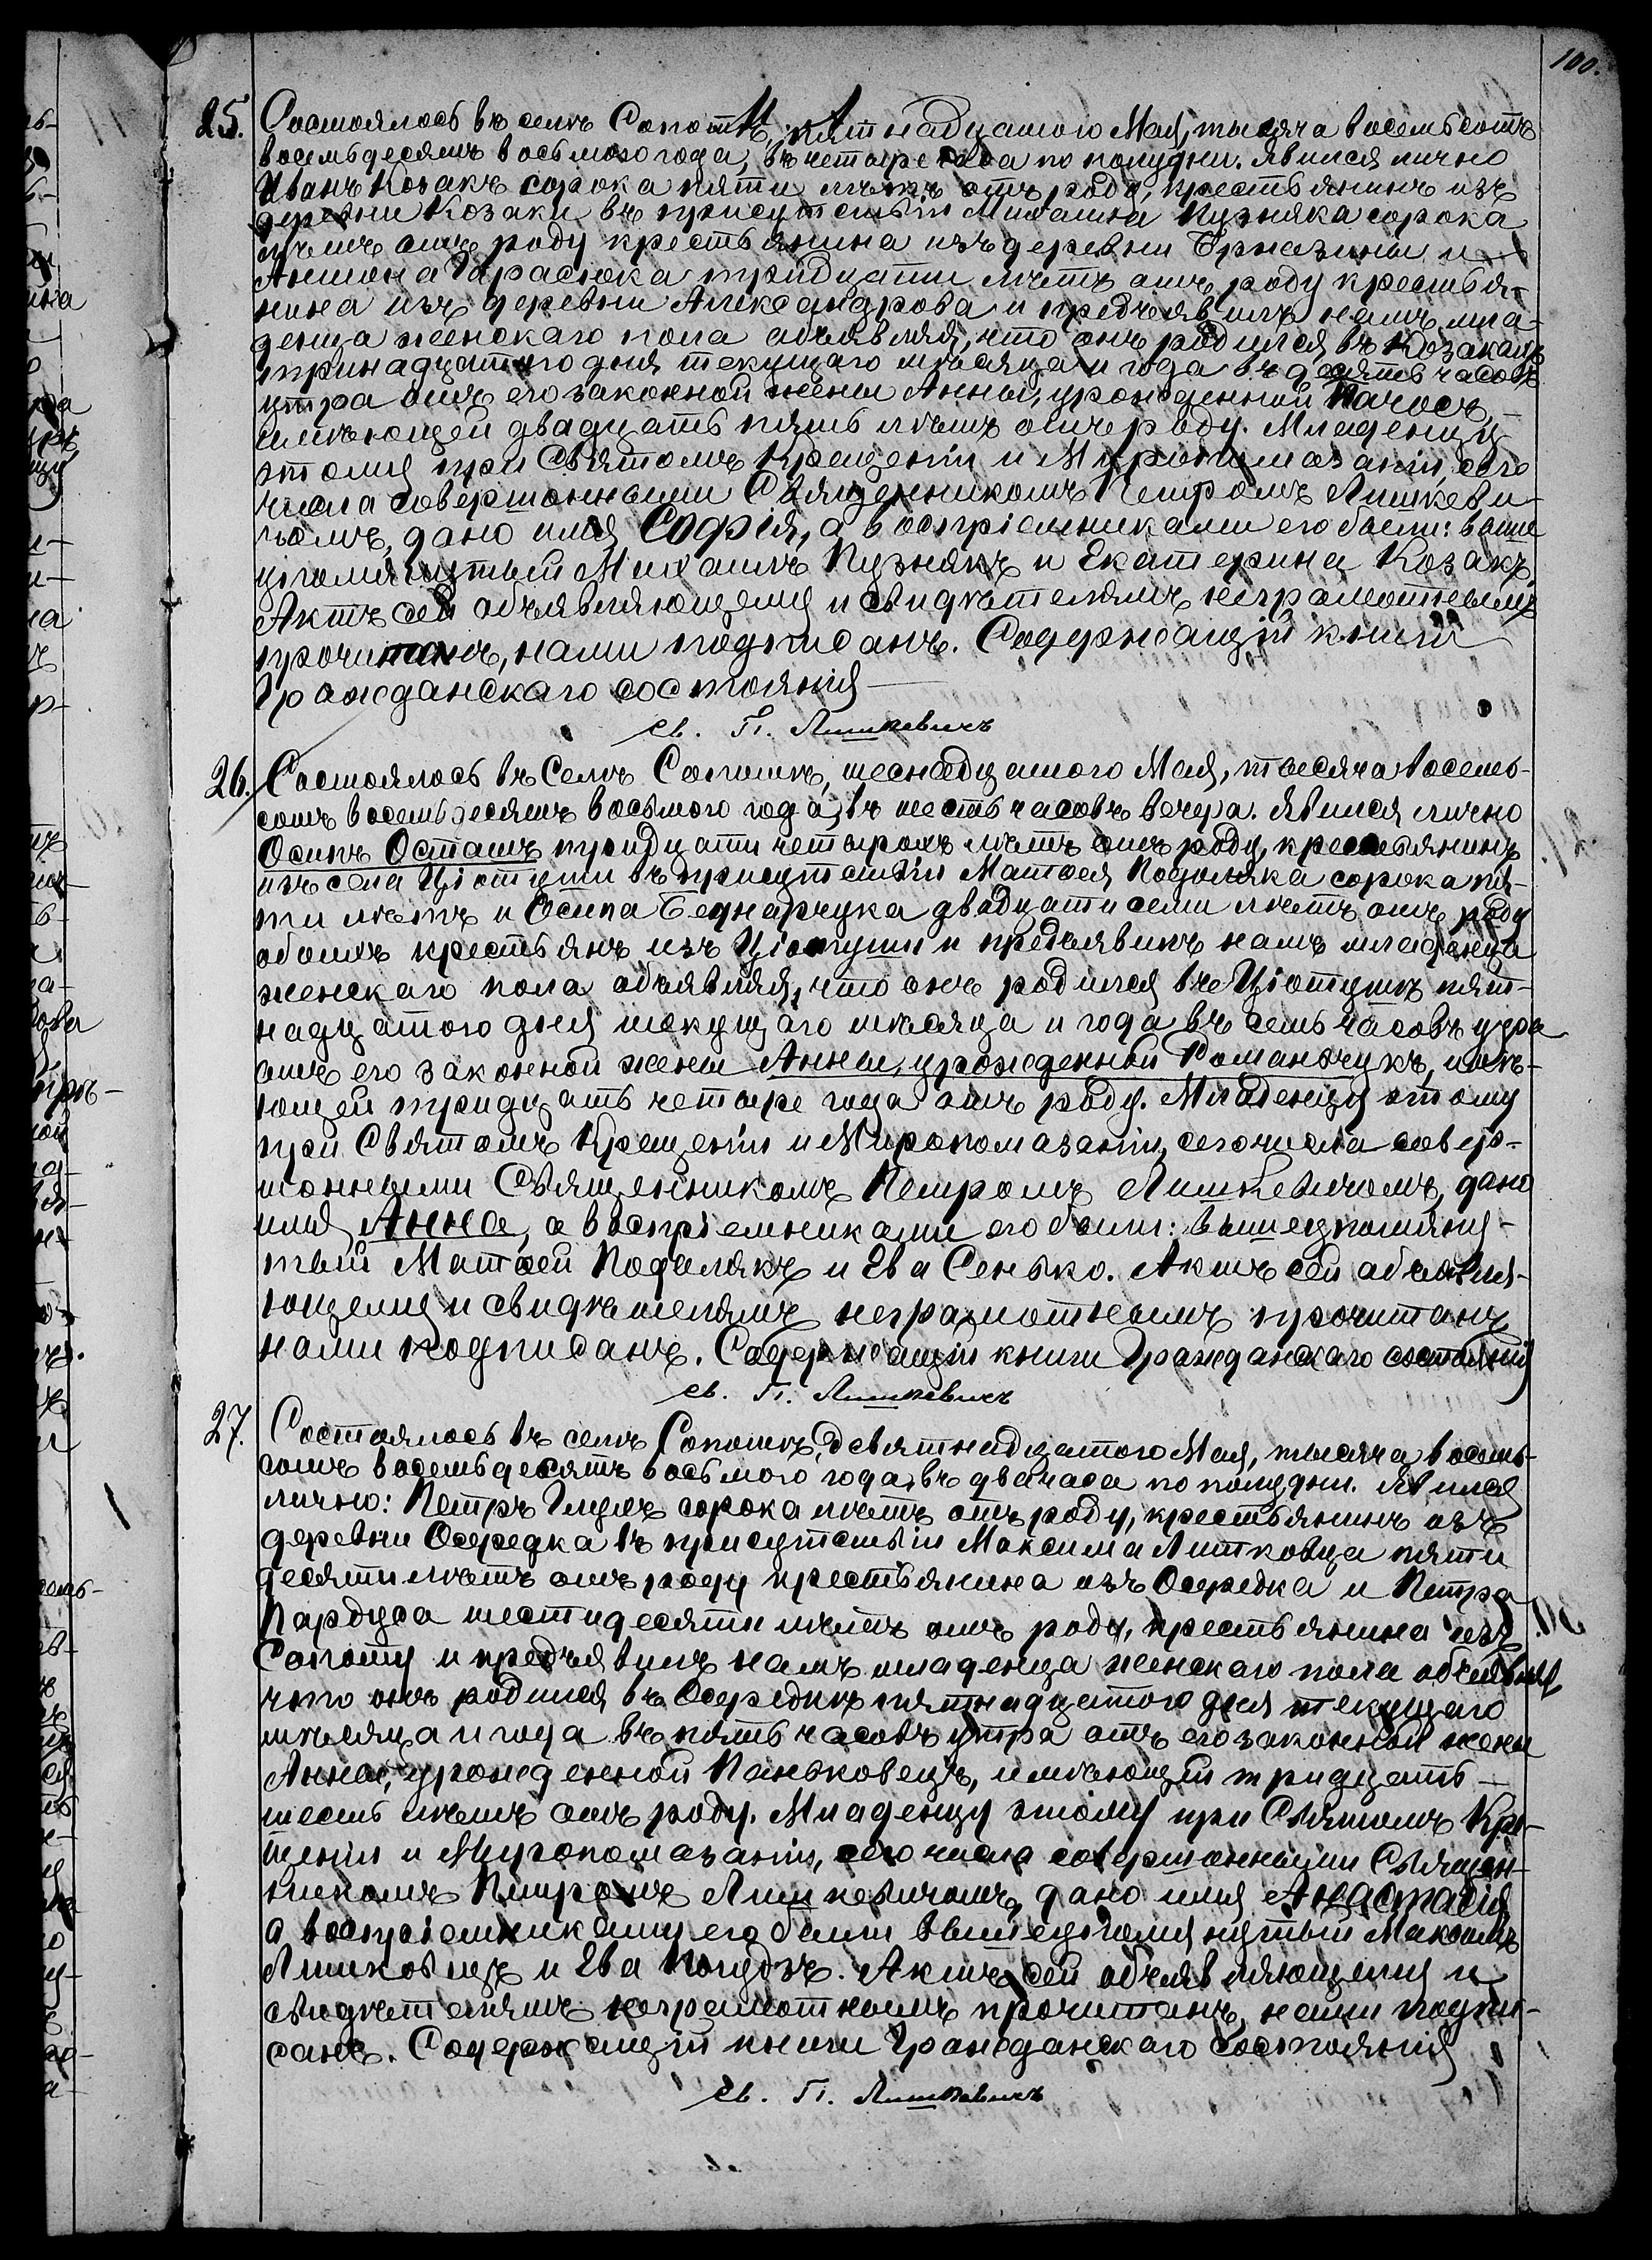 100.
25. Состоялось въ селѣ Сопотѣ, пятнадцатого Мая, тысяча восемьсотъ
восемьдесятъ восьмого года, въ четыре часа по полудни. Явился лично
Иванъ Козакъ сорока пяти лѣтъ отъ роду, крестьянинъ изъ
деревни Козаки, въ присутствіи Михаила Пузняка сорока
лѣтъ отъ роду крестьянина изъ деревни Бржезины и
Антона Тарасюка тридцати лѣтъ отъ роду крестья-
нина изъ деревни Александрова и предъявилъ намъ мла-
денца женскаго пола объявляя, что онъ родился въ Козакахъ
тринадцатого дня текущаго мѣсяца и года въ десять часовъ
утра отъ его законной жены Анны, урожденной Пачосъ,
имѣющей двадцать пять лѣтъ отъ роду. Младенцу
этому при Святомъ Крещеніи и Миропомазаніи, сего
числа совершонными Священникомъ Петромъ Лишкеви-
чомъ, дано имя Софія, а воспріемниками его были: выше
упомянутый Михаилъ Пузнякъ и Екатерина Козакъ.
Актъ сей объявляющему и свидѣтелямъ неграмотнымъ
прочитанъ, нами подписанъ. Содержащій книги
Гражданскаго состоянія
Св. П. Лишкевичъ
26. Состоялось въ Селѣ Сопотѣ, шеснадцатого Мая, тысяча восемь-
сотъ восемьдесятъ восьмого года, въ шесть часовъ вечера. Явился лично
Осипъ Осташъ тридцати четырохъ лѣтъ отъ роду, крестьянинъ
изъ села Ціотуши въ присутствіи Матѳея Подоляка сорока пя-
ти лѣтъ и Осипа Беднарчука двадцати семи лѣтъ отъ роду
обоихъ крестьянъ изъ Ціотуши и предъявилъ намъ младенца
женскаго пола объявляя, что онъ родился въ Ціотушѣ пят-
надцатого дня текущаго мѣсяца и года въ семь часовъ утра
отъ его законной жены Анны, урожденной Романчукъ, имѣ-
ющей тридцать четыре года отъ роду. Младенцу этому
при Святомъ Крещеніи и Миропомазаніи, сего числа совер-
шонными Священникомъ Петромъ Лишкевичомъ, дано
имя Анна, а воспріемниками его были: вышеупомяну-
тый Матѳей Подолякъ и Ева Сенько. Актъ сей объявля-
ющему и свидѣтелямъ неграмотнымъ прочитанъ
нами подписанъ. Содержащій книги Гражданскаго состоянія
Св. П. Лишкевичъ
27. Состоялось въ селѣ Сопотѣ, девятнадцатого Мая, тысяча восемь-
сотъ восемьдесятъ восьмого года, въ два часа по полудни. Явился
лично: Петръ сорока лѣтъ отъ роду, крестьянинъ изъ
деревни Осередка въ присутствіи Максима Литковца пяти
десяти лѣтъ отъ роду крестьянина изъ Осередка и Петра
Пардуса шестидесяти лѣтъ отъ роду, крестьянина изъ
Сопоту и предъявилъ намъ младенца женскаго пола объявляя
что онъ родился въ Осередкѣ пятнадцатого дня текущаго
мѣсяца и года въ пять часовъ утра отъ его законной жены
Анны, урожденной Паньковецъ, имѣющей тридцать
шесть лѣтъ отъ роду. Младенцу этому при Святомъ Кре-
щеніи и Миропомазаніи, сего числа совершонными Священ-
никомъ Петромъ Лишкевичомъ, дано имя Анастасія
а воспріемниками его были вышеупомянутый Максимъ
Литковецъ и Ева. Актъ сей объявляющему и
свидѣтелямъ неграмотнымъ прочитанъ, нами подпи-
санъ. Содержащій книги Гражданскаго состоянія
Св. П. Лишкевичъ